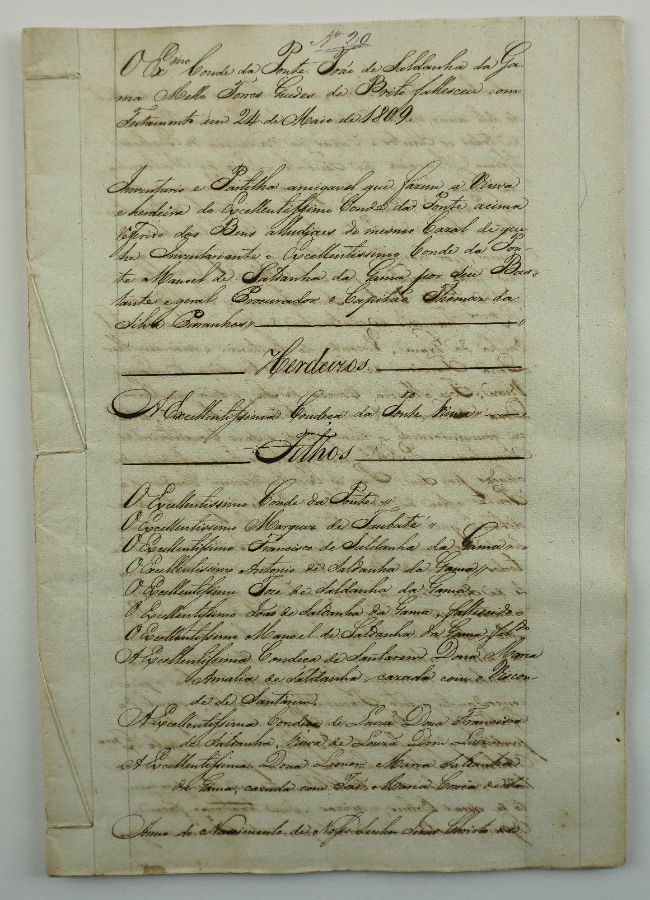 Nº 20
O Exmo Conde da Ponte João de Saldanha da Ga-
ma Mello Torres Guedes de Brito fallesceu com
Testamento em 24 de Maio de 1809.
Inventario e Partilha amigavel que fazem a Viuva
e herdeiros do Excellentissimo Conde da Ponte acima
referido dos Bens do mesmo Cazal de que
he Inventariante o Excellentissimo Conde da Pon-
te Manoel de Saldanha da Gama por seu Bas-
tante e geral Procurador o Capitão Thomaz da
Silva Paranhos
Herdeiros
A Excellentissima Condeça da Ponte, Viuva
Filhos
O Excellentissimo Conde da Ponte
O Excellentissimo Marquez de Taubaté
O Excellentissimo Francisco de Saldanha da Gama
O Excellentissimo Antonio de Saldanha da Gama
O Excellentissimo Joze de Saldanha da Gama
O Excellentissimo João de Saldanha da Gama, fallescido
O Excellentissimo Manoel de Saldanha da Gama, faldo
A Excellentissima Condeça de Santarem Dona Maria
Amalia de Saldanha, cazada com o Viscon-
de de Santarem.
A Excellentissima Condeça de Louzã Dona Francisca
de Saldanha, Viuva de Louzã Dom Luiz
A Excellentissima Dona Leonor Maria Saldanha
da Gama, cazada com José Maria Correa de Sá
Anno do Nascimento de Nosso Senhor Jesus Christo de